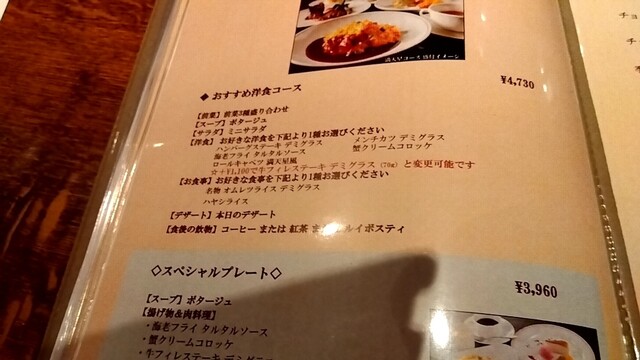 満天星コース 別付イメージ
◆ おすすめ洋食コース
¥4,730
【前菜】 前菜3種盛り合わせ
【スープ】 ポタージュ
【サラダ】 ミニサラダ
【洋食】 お好きな洋食を下記より1種お選びください
ハンバーグステーキ デミグラス メンチカツ デミグラス
海老フライ タルタルソース 蟹クリームコロッケ
ロールキャベツ 満天星風
☆+¥1,100で牛フィレステーキ デミグラス (70g) と変更可能です
【お食事】 お好きな食事を下記より1種お選びください
名物 オムレツライス デミグラス
ハヤシライス
【デザート】 本日のデザート
【食後の飲物】 コーヒー または 紅茶 または ルイボスティ
◇スペシャルプレート◇
¥3,960
【スープ】 ポタージュ
【揚げ物&肉料理】
・海老フライ タルタルソース
・蟹クリームコロッケ
・牛フィレステーキ デミグラ
チョ
チ